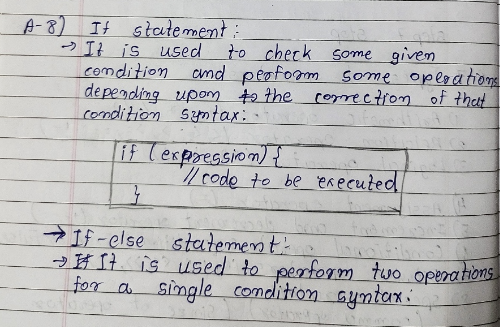 A-8) If statement:
→ It is used to check some given
condition and perform some operations
depending upon to the correction of that
condition syntax:
if (expression) {
//code to be executed
}
→ If-else statement:
→ It is used to perform two operations
for a single condition syntax: